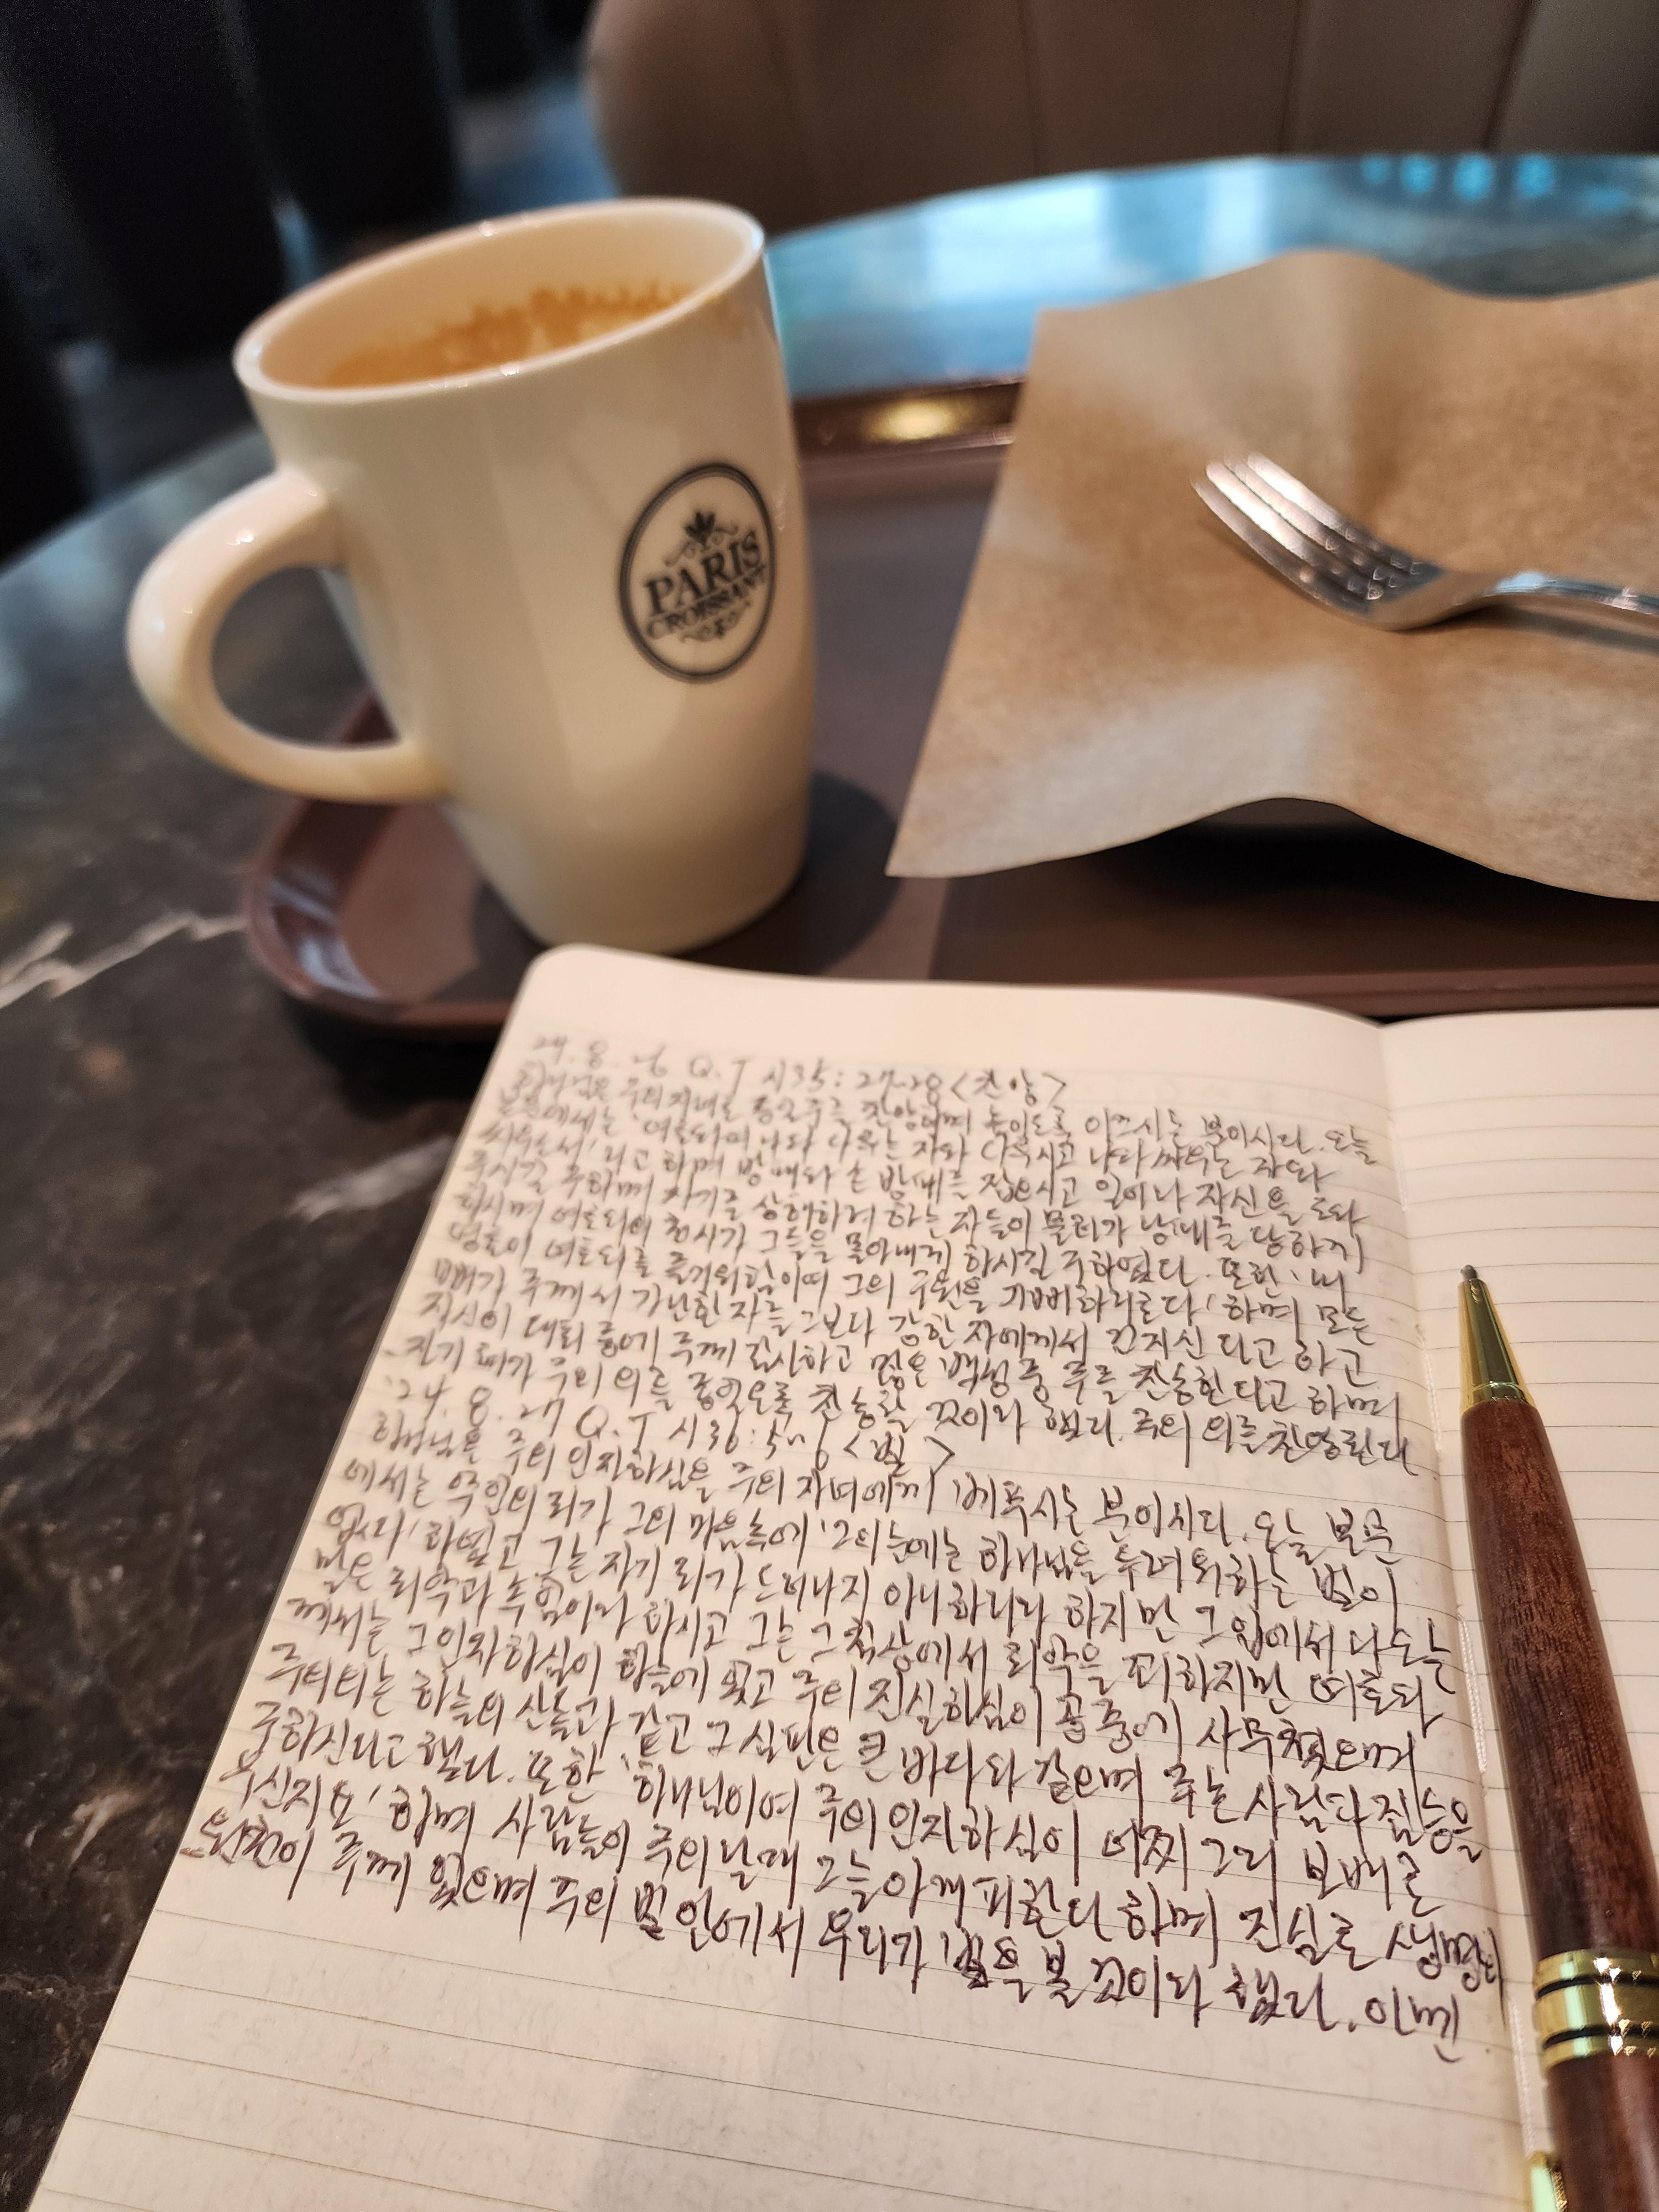 PARIS
CROISSANT
24. 8. 26 Q.T 시35: 27-28 <찬양>
하나님은 주의 자녀로 종일 주를 찬양하며 높이도록 이끄시는 분이시다. 오늘
본문에서는 '여호와여 나와 다투는 자와 다투시고 나와 싸우는 자와
싸우소서' 라고 하며 방패와 손 방패를 잡으시고 일어나 자신을 도와
주시길 구하며 자기를 상해하려 하는 자들이 물러가 낭패를 당하게
하시며 여호와의 천사가 그들을 몰아내게 하시길 구하였다. 또한, '내
영혼이 여호와를 즐거워함이여 그의 구원을 기뻐하리로다' 하며 모든
뼈가 주께서 가난한 자를 그보다 강한 자에게서 건지신다고 하고
자신이 대회 중에 주께 감사하고 많은 백성 중 주를 찬송한다고 하며
자기 혀가 주의 의를 종일토록 찬송할 것이라 했다. 주의 의를 찬양한다
'24. 8. 27 Q.T 시36: <빛>
하나님은 주의 인자하심을 주의 자녀에게 베푸시는 분이시다. 오늘 본문
에서는 악인의 죄가 그의 마음속에 '그의 눈에는 하나님을 두려워하는 빛이
없다' 하였고 그는 자기 죄가 드러나지 아니하리라 하지만 그 입에서 나오는
말은 죄악과 속임이라 하시고 그는 그 침상에서 죄악을 꾀하지만 여호와
께서는 그 인자하심이 하늘에 있고 주의 진실하심이 공중에 사무쳤으며
주의 의는 하늘의 산들과 같고 그 심판은 큰 바다와 같으며 주는 사람과 짐승을
구하신다고 했다. 또한 '하나님이여 주의 인자하심이 어찌 그리 보배로
우신지요' 하며 사람들이 주의 날개 그늘 아래 피한다 하며 진실로 생명의
원천이 주께 있으며 주의 빛 안에서 우리가 빛을 볼 것이라 했다. 아멘